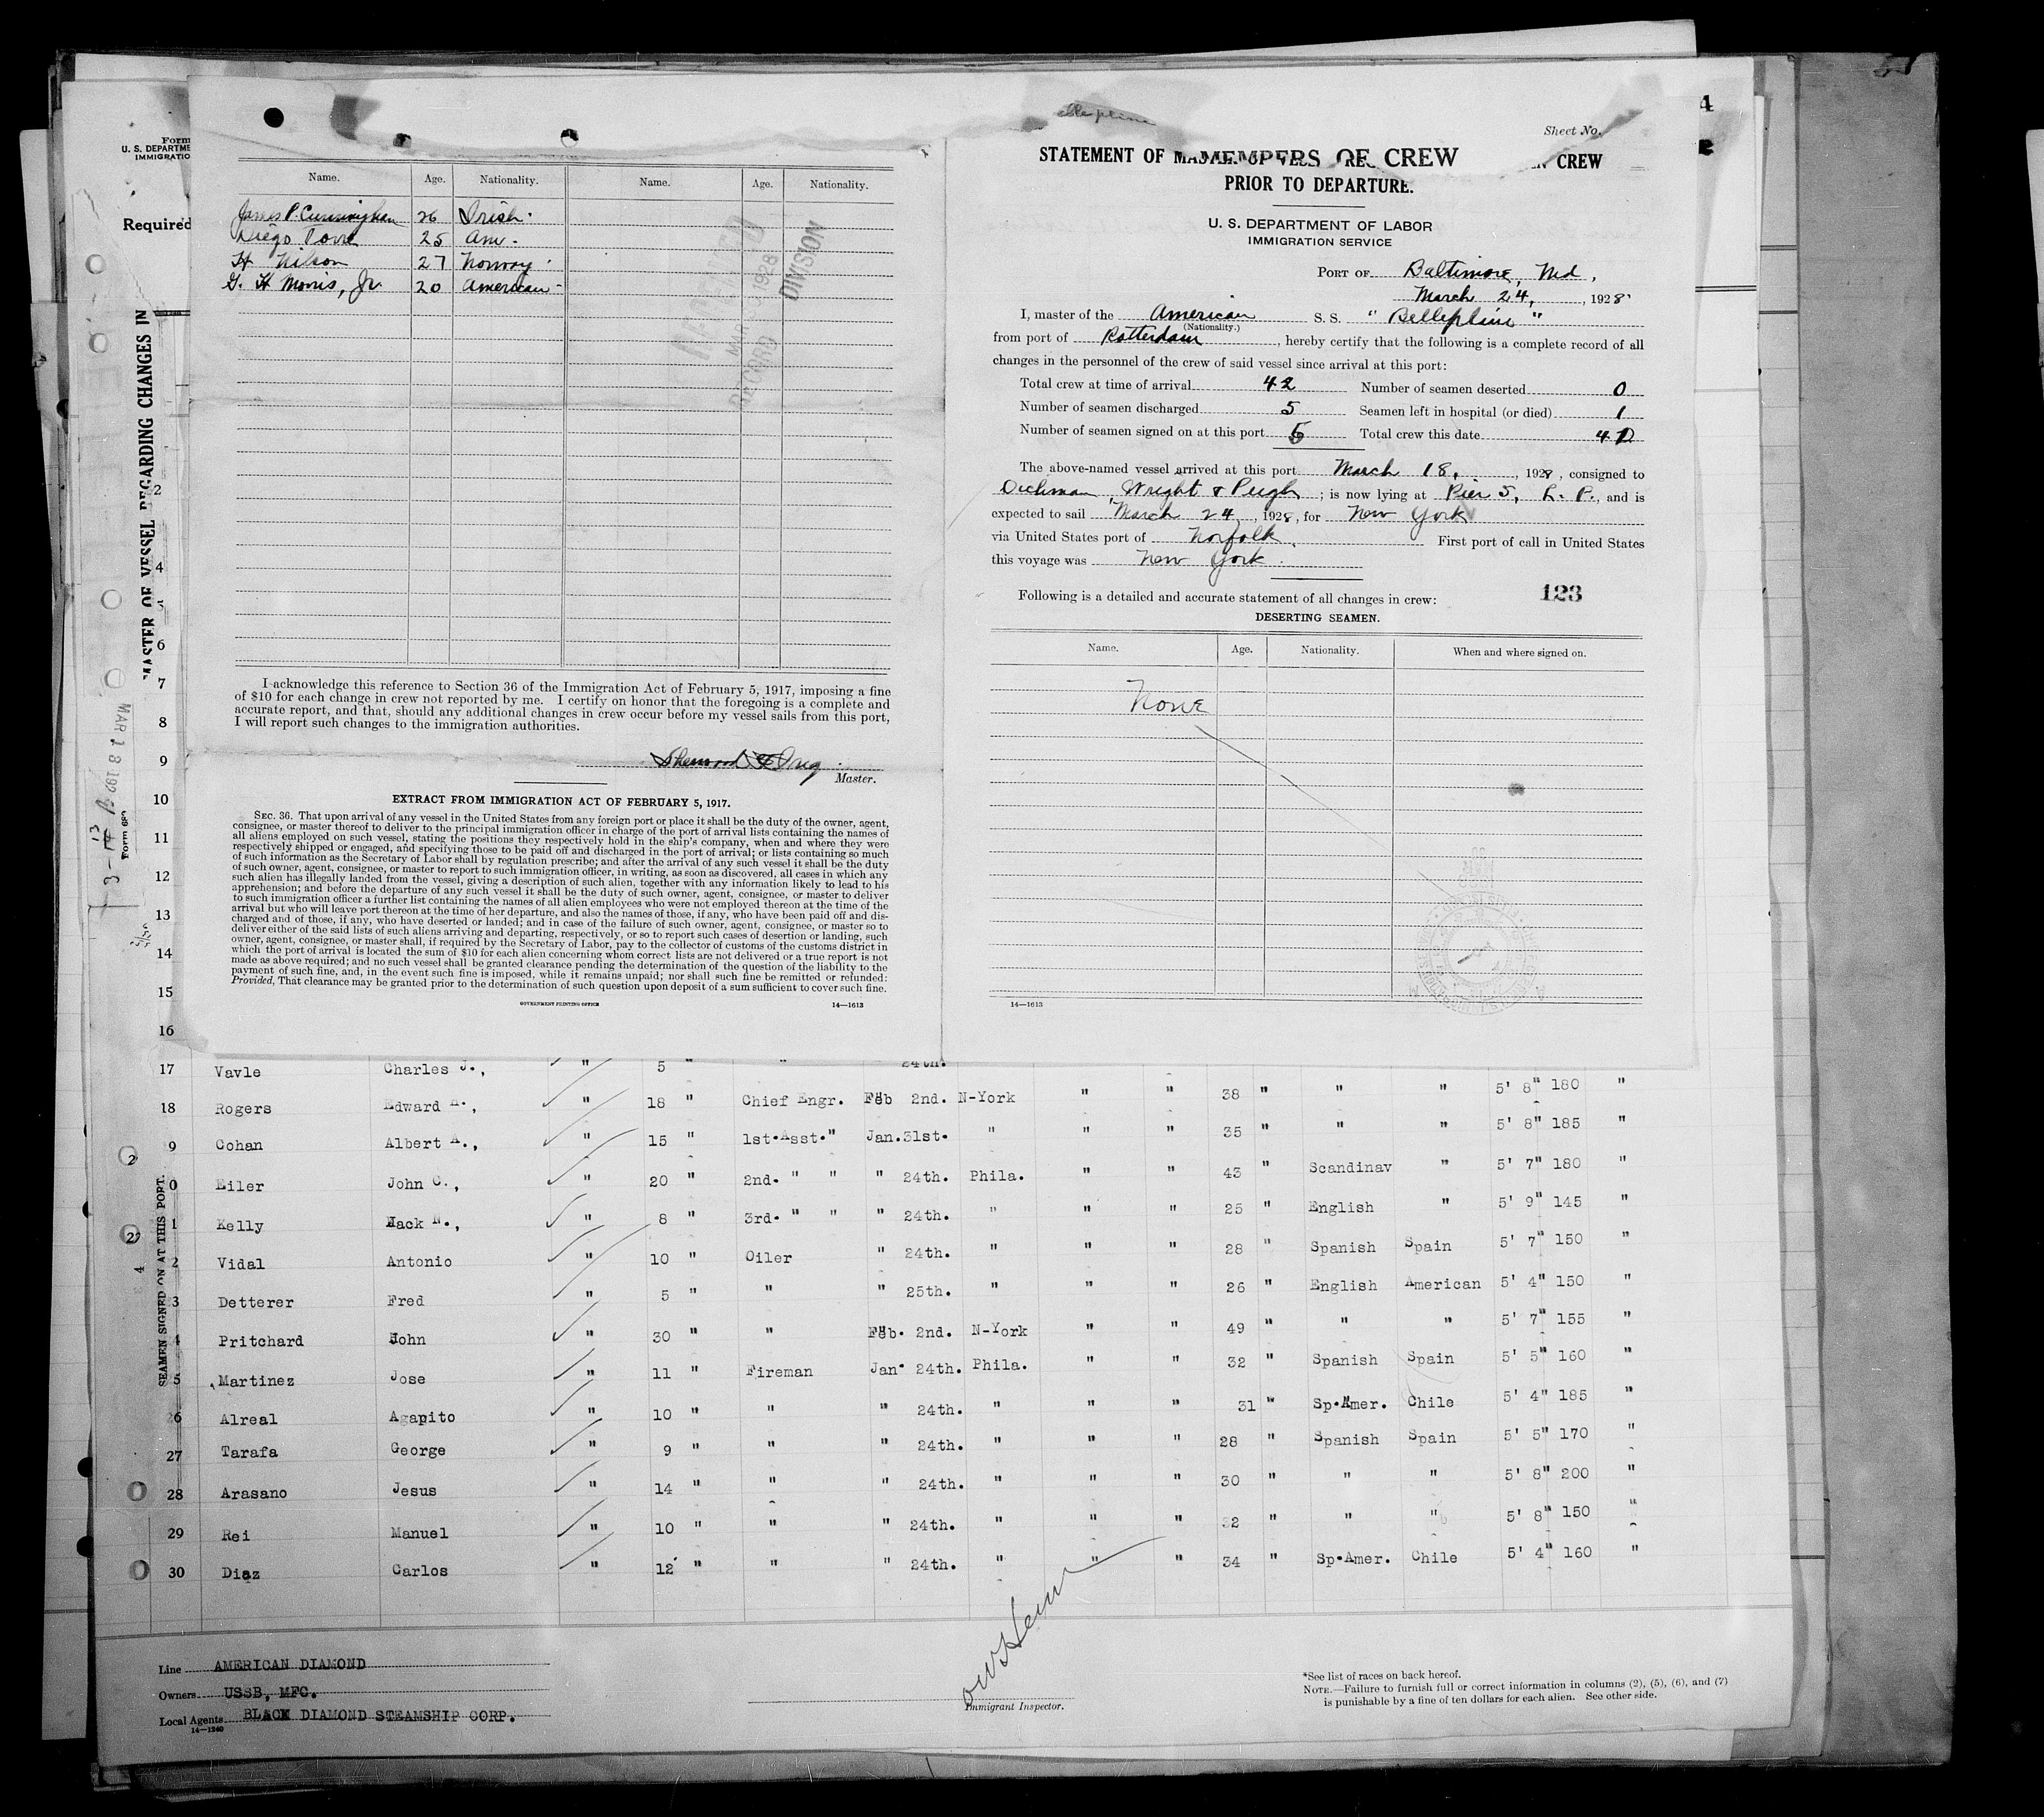 Form
U. S. DEPARTME
IMMIGRATIO
Required
MASTER OF VESSEL REGARDING CHANGES IN
SEAMEN SIGNED ON AT THIS PORT.
Name. Age. Nationality. Name. Age. Nationality.
James P. Cunningham 26 Irish
Diego 25 Am.
H Nilson 27 Norway
G. H Morris, Jr. 20 American
RECORD DIVISION
I acknowledge this reference to Section 36 of the Immigration Act of February 5, 1917, imposing a fine
of $10 for each change in crew not reported by me. I certify on honor that the foregoing is a complete and
accurate report, and that, should any additional changes in crew occur before my vessel sails from this port,
I will report such changes to the immigration authorities.
Sherwood
Master.
EXTRACT FROM IMMIGRATION ACT OF FEBRUARY 5, 1917.
SEC. 36. That upon arrival of any vessel in the United States from any foreign port or place it shall be the duty of the owner, agent,
consignee, or master thereof to deliver to the principal immigration officer in charge of the port of arrival lists containing the names of
all aliens employed on such vessel, stating the positions they respectively hold in the ship's company, when and where they were
respectively shipped or engaged, and specifying those to be paid off and discharged in the port of arrival; or lists containing so much
of such information as the Secretary of Labor shall by regulation prescribe; and after the arrival of any such vessel it shall be the duty
of such owner, agent, consignee, or master to report to such immigration officer, in writing, as soon as discovered, all cases in which any
such alien has illegally landed from the vessel, giving a description of such alien, together with any information likely to lead to his
apprehension; and before the departure of any such vessel it shall be the duty of such owner, agent, consignee, or master to deliver
to such immigration officer a further list containing the names of all alien employees who were not employed thereon at the time of the
arrival but who will leave port thereon at the time of her departure, and also the names of those, if any, who have been paid off and dis-
charged and of those, if any, who have deserted or landed; and in case of the failure of such owner, agent, consignee, or master so to
deliver either of the said lists of such aliens arriving and departing, respectively, or so to report such cases of desertion or landing, such
owner, agent, consignee, or master shall, if required by the Secretary of Labor, pay to the collector of customs of the customs district in
which the port of arrival is located the sum of $10 for each alien concerning whom correct lists are not delivered or a true report is not
made as above required; and no such vessel shall be granted clearance pending the determination of the question of the liability to the
payment of such fine, and, in the event such fine is imposed, while it remains unpaid; nor shall such fine be remitted or refunded:
Provided, That clearance may be granted prior to the determination of such question upon deposit of a sum sufficient to cover such fine.
GOVERNMENT PRINTING OFFICE 14—1613
Sheet No.
STATEMENT OF MEMBERS OF CREW CREW
PRIOR TO DEPARTURE.
U. S. DEPARTMENT OF LABOR
IMMIGRATION SERVICE
PORT OF Baltimore, Md,
March 24, , 1928
I, master of the American S. S. " Belleplaine "
(Nationality.)
from port of Rotterdam, hereby certify that the following is a complete record of all
changes in the personnel of the crew of said vessel since arrival at this port:
Total crew at time of arrival 42 Number of seamen deserted 0
Number of seamen discharged 5 Seamen left in hospital (or died) 1
Number of seamen signed on at this port 5 Total crew this date 41
The above-named vessel arrived at this port March 18, , 1928, consigned to
Dichman, Wright & Pugh ; is now lying at Pier 5, L. P., and is
expected to sail March 24, 1928, for New York
via United States port of Norfolk. First port of call in United States
this voyage was New York.
Following is a detailed and accurate statement of all changes in crew:
123
DESERTING SEAMEN.
Name. Age. Nationality. When and where signed on.
None
14—1613
2
4
5
6
7
8
9
10
11
12
13
14
15
16
17 Vavle Charles J., " 5 " " 24th.
18 Rogers Edward A., " 18 " Chief Engr. Feb 2nd. N-York " " 38 " " " 5' 8" 180 "
9 Cohan Albert A., " 15 " 1st.Asst." Jan.31st. " " " 35 " " " 5' 8" 185 "
0 Eiler John C., " 20 " 2nd. " " " 24th. Phila. " " 43 " Scandinav " 5' 7" 180 "
1 Kelly Jack M., " 8 " 3rd. " " " 24th. " " " 25 " English " 5' 9" 145 "
2 Vidal Antonio " 10 " Oiler " 24th. " " " 28 " Spanish Spain 5' 7" 150 "
3 Detterer Fred " 5 " " " 25th. " " " 26 " English American 5' 4" 150 "
4 Pritchard John " 30 " " Feb. 2nd. N-York " " 49 " " " 5' 7" 155 "
5 Martinez Jose " 11 " Fireman Jan. 24th. Phila. " " 32 " Spanish Spain 5' 5" 160 "
26 Alreal Agapito " 10 " " " 24th. " " " 31 " Sp.Amer. Chile 5' 4" 185 "
27 Tarafa George " 9 " " " 24th. " " " 28 " Spanish Spain 5' 5" 170 "
28 Arasano Jesus " 14 " " " 24th. " " " 30 " " " 5' 8" 200 "
29 Rei Manuel " 10 " " " 24th. " " " 32 " " " 5' 8" 150 "
30 Diaz Carlos " 12 " " " 24th. " " " 34 " Sp.Amer. Chile 5' 4" 160 "
Line AMERICAN DIAMOND
Owners USSB, MFC.
Local Agents BLACK DIAMOND STEAMSHIP CORP.
14—1240
Immigrant Inspector.
*See list of races on back hereof.
NOTE.—Failure to furnish full or correct information in columns (2), (5), (6), and (7)
is punishable by a fine of ten dollars for each alien. See other side.